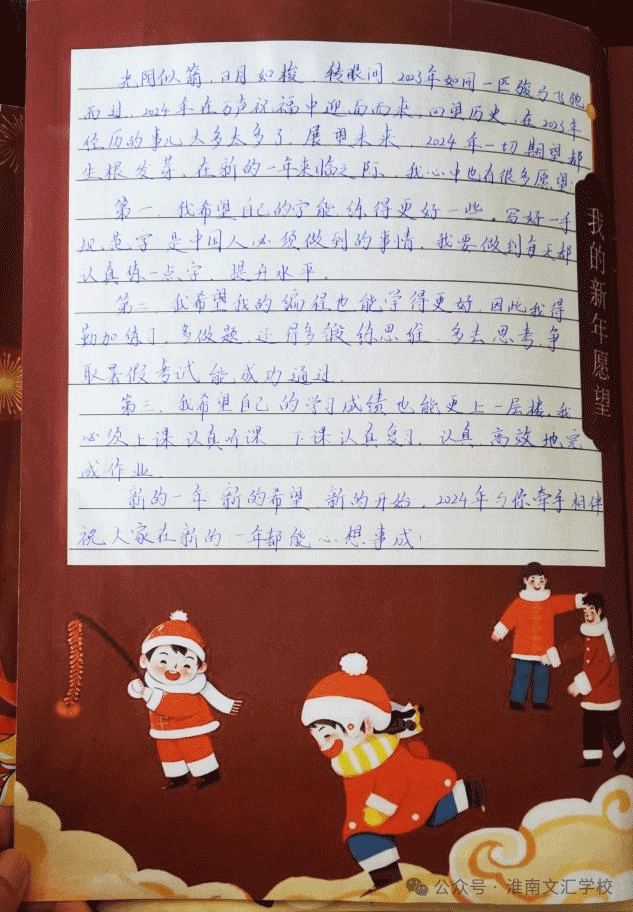 光阴似箭,日月如梭,转眼间,2023年如同一匹骏马飞驰
而过,2024年在万声祝福中迎面而来,回望历史,在2023年
经历的事儿太多太多了,展望未来,2024年一切期望都
生根发芽、在新的一年来临之际,我心中也有很多愿望:
第一,我希望自己的字能练得更好一些。写好一手
规范字是中国人必须做到的事情,我要做到每天都
认真练一点字,提升水平。
第二,我希望我的编程也能学得更好,因此我得
勤加练习,多做题,还得多锻练思维,多去思考,争
取暑假考试能成功通过。
第三,我希望自己的学习成绩也能更上一层楼,我
必须上课认真听课,下课认真复习,认真高效地完
成作业。
新的一年新的希望,新的开始,2024年与你牵手相伴
祝大家在新的一年都能心想事成!
我的新年愿望
公众号·淮南文汇学校